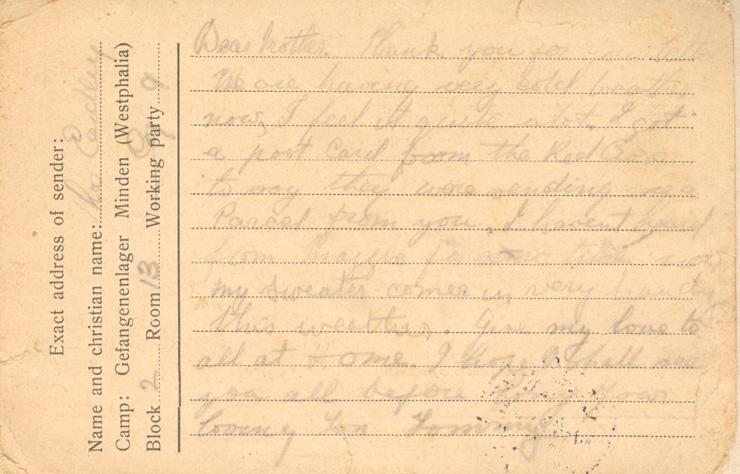 Exact address of sender:
Name and christian name:
Camp: Gefangenenlager Minden (Westphalia)
Block 2 Room 13 Working party 9
Dear Mother. Thank you for your
We are having very cold weather
now, I feel it quite a lot. I got
a post Card from the Red Cross
to say they were sending me a
Parcel from you, I havent heard
from now
my sweater comes in very handy
this weather. Give my love to
all at Home. I hope I shall see
you all before long. Your
loving Son Tommy